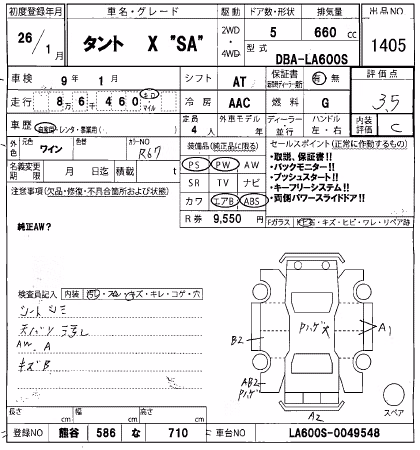 初度登録年月 車名・グレード 駆動 ドア数・形状 排気量 出品NO
26/1月 タント X "SA" 2WD・4WD 5 660 cc 1405
型式 DBA-LA600S
車検 9年 1月 シフト AT 保証書 有・無 評価点
走行 8万6千460 キロ・マイル 冷房 AAC 燃料 G 3.5
車歴 自家用・レンタ・事業用( ) 定員 4人 外車モデル 年 ディーラー・並行 ハンドル 左・右 内装評価 C
外色 元色 ワイン 色替 カラーNO R67
装備品(純正品に限る)
PS PW AW
SR TV ナビ
カワ エアB ABS
R券 9,550円
セールスポイント(正常に作動するもの)
・取説、保証書!!
・バックモニター!!
・プッシュスタート!!
・キーフリーシステム!!
・両側パワースライドドア!!
名義変更期限 月 日迄 積載 t
注意事項(欠品・修復・不具合箇所および状態)
純正AW?
Fガラス キズ・ヒビ・ワレ・リペア跡
検査員記入 内装 キズ・キレ・コゲ・穴
シートシミ
AW A
キズB
B2
A1
AB2
A2
スペア
長さ cm 幅 cm 高さ cm
登録NO 熊谷 586 な 710 車台NO LA600S-0049548